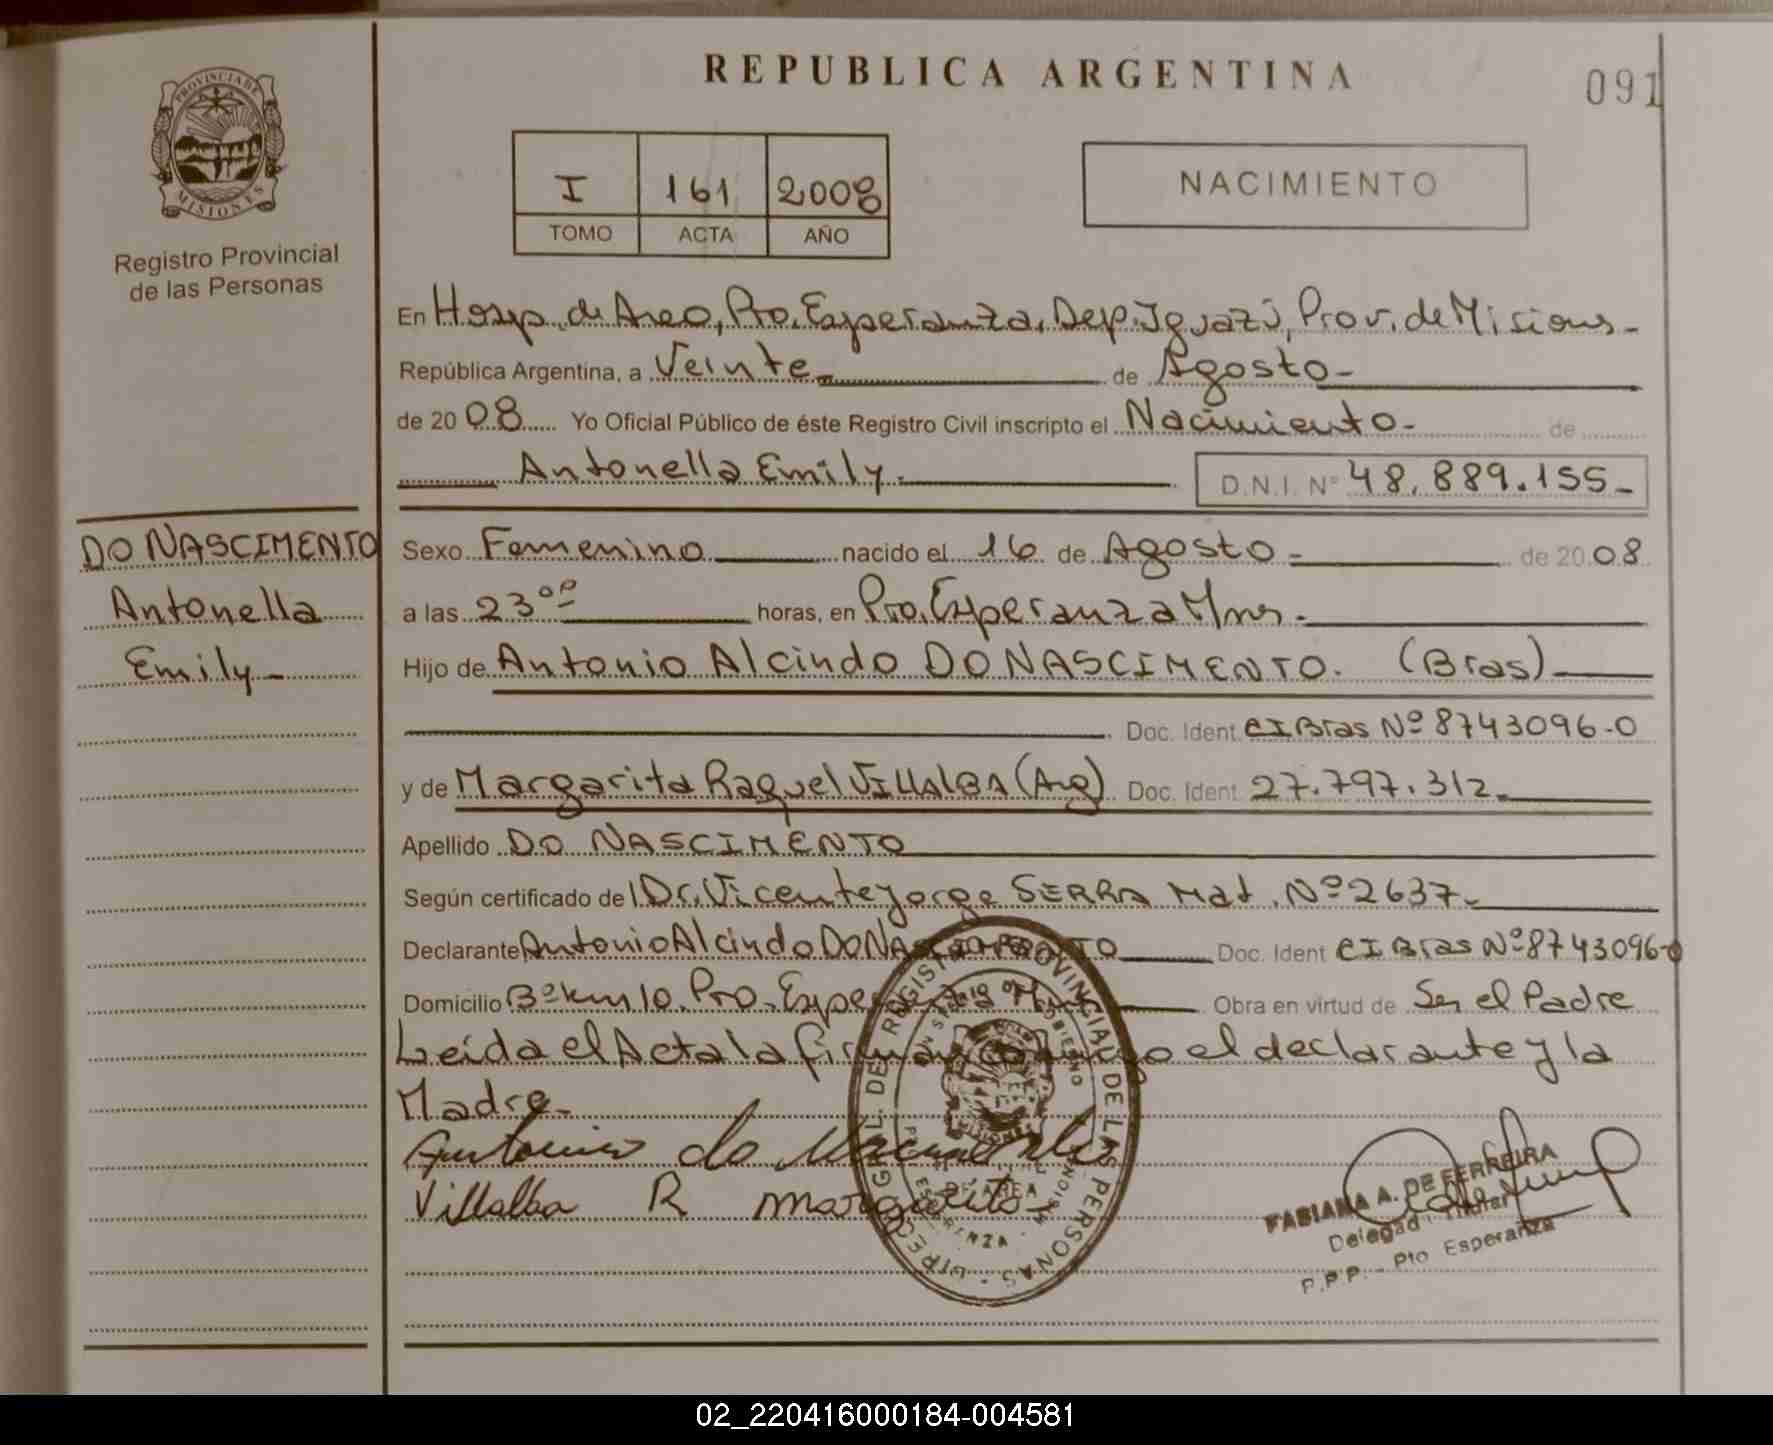 REPUBLICA ARGENTINA
091
PROVINCIA DE
MISIONES
Registro Provincial
de las Personas
I 161 2008
TOMO ACTA AÑO
NACIMIENTO
En Hosp. de Area, Pto. Esperanza, Dep. Iguazú, Prov. de Misiones-
República Argentina, a Veinte- de Agosto-
de 2008 Yo Oficial Público de éste Registro Civil inscripto el Nacimiento- de
Antonella Emily- D.N.I. Nº 48.889.155-
DO NASCIMENTO
Antonella
Emily-
Sexo Femenino nacido el 16 de Agosto- de 2008
a las 23 horas, en Pto. Esperanza Mnes.-
Hijo de Antonio Alcindo DO NASCIMENTO. (Bras)
Doc. Ident. CI Bras Nº 8743096-0
y de Margarita Raquel VILLALBA (Arg) Doc. Ident. 27.797.312-
Apellido DO NASCIMENTO
Según certificado del Dr. Vicente Jorge SERRA Mat. Nº 2637-
Declarante Antonio Alcindo DO NASCIMENTO Doc. Ident CI Bras Nº 8743096-0
Domicilio Bº km 10. Pto. Esperanza Obra en virtud de Ser el Padre
Leída el Acta la firman conmigo el declarante y la
Madre-
Antonio do Nascimento
Villalba R margarita
DIREC. GRAL. DE REGISTRO PROVINCIAL DE LAS PERSONAS
MINISTERIO DE GOBIERNO
MISIONES
ESPERANZA
FABIANA A. DE FERREIRA
Delegada Titular
P.P.P. - Pto Esperanza
02_220416000184-004581